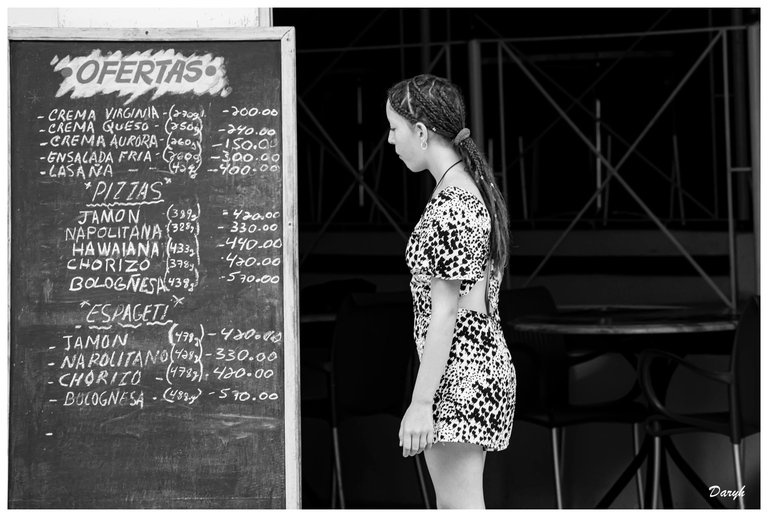 OFERTAS
- CREMA VIRGINIA - (270g) - 200.00
- CREMA QUESO - (250g) - 240.00
- CREMA AURORA - (260g) - 150.00
- ENSALADA FRIA - (200g) - 300.00
- LASAÑA - (42g) - 400.00
"PIZZAS"
JAMON (389g) - 420.00
NAPOLITANA (328g) - 330.00
HAWAIANA (433g) - 440.00
CHORIZO (378g) - 420.00
BOLOGÑESA (438g) - 570.00
"ESPAGETI"
- JAMON (478g) - 420.00
- NAPOLITANO (428g) - 330.00
- CHORIZO - (478g) - 420.00
- BOLOGNESA - (488g) - 570.00
Daryh